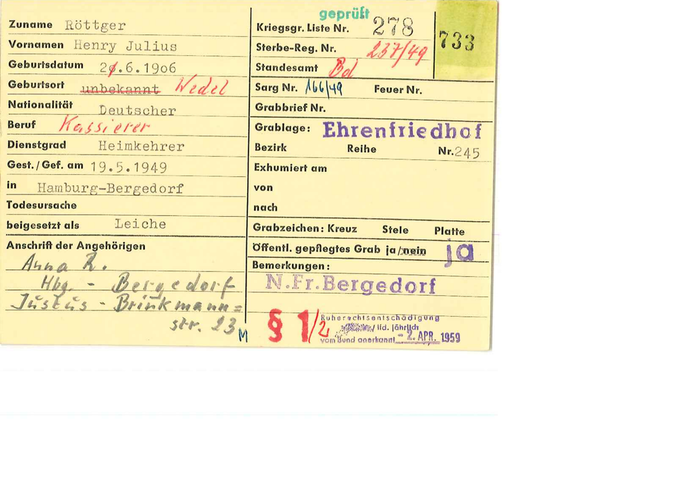 geprüft
Zuname Röttger
Vornamen Henry Julius
Geburtsdatum 21.6.1906
Geburtsort unbekannt Wedel
Nationalität Deutscher
Beruf Kassierer
Dienstgrad Heimkehrer
Gest./Gef. am 19.5.1949
in Hamburg-Bergedorf
Todesursache
beigesetzt als Leiche
Anschrift der Angehörigen
Anna R.
Hbg. - Bergedorf
Justus - Brinkmann=
str. 23
M
Kriegsgr. Liste Nr. 278
733
Sterbe-Reg. Nr. 237/49
Standesamt Bd
Sarg Nr. 166/49 Feuer Nr.
Grabbrief Nr.
Grablage: Ehrenfriedhof
Bezirk Reihe Nr. 245
Exhumiert am
von
nach
Grabzeichen: Kreuz Stele Platte
Öffentl. gepflegtes Grab ja/nein ja
Bemerkungen:
N.Fr.Bergedorf
§ 1/2
Ruherechtsentschädigung
/ lfd. jährlich
vom Bund anerkannt - 2. APR. 1959